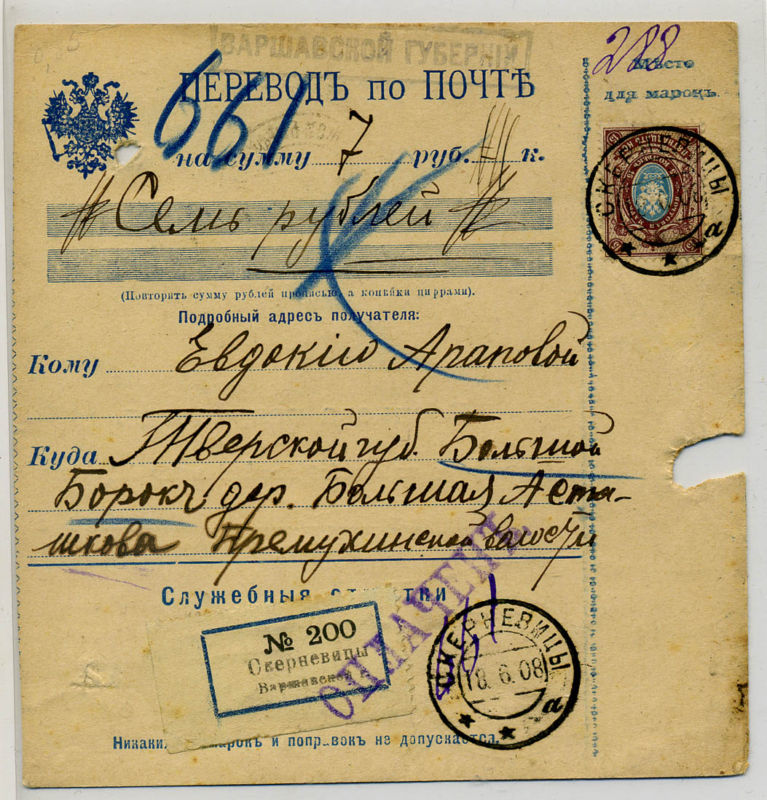 ВАРШАВСКОЙ ГУБЕРНІИ
288
Мѣсто
для марокъ.
ПЕРЕВОДЪ по ПОЧТѢ
661
на сумму 7 руб. к.
Семь рублей
СКЕРНЕВИЦЫ
а
(Повторить сумму рублей прописью, а копѣйки цифрами).
Подробный адресъ получателя:
Кому Евдокіи Араповой
Куда Тверской губ. Большой
Борокъ дер. Большая Аста-
шкова Премухинской волости
Служебныя отмѣтки
ОПЛАЧЕНЪ
№ 200
Скерневицы
Варшавской
СКЕРНЕВИЦЫ
18.6.08
а
Никакихъ помарокъ и поправокъ не допускается.